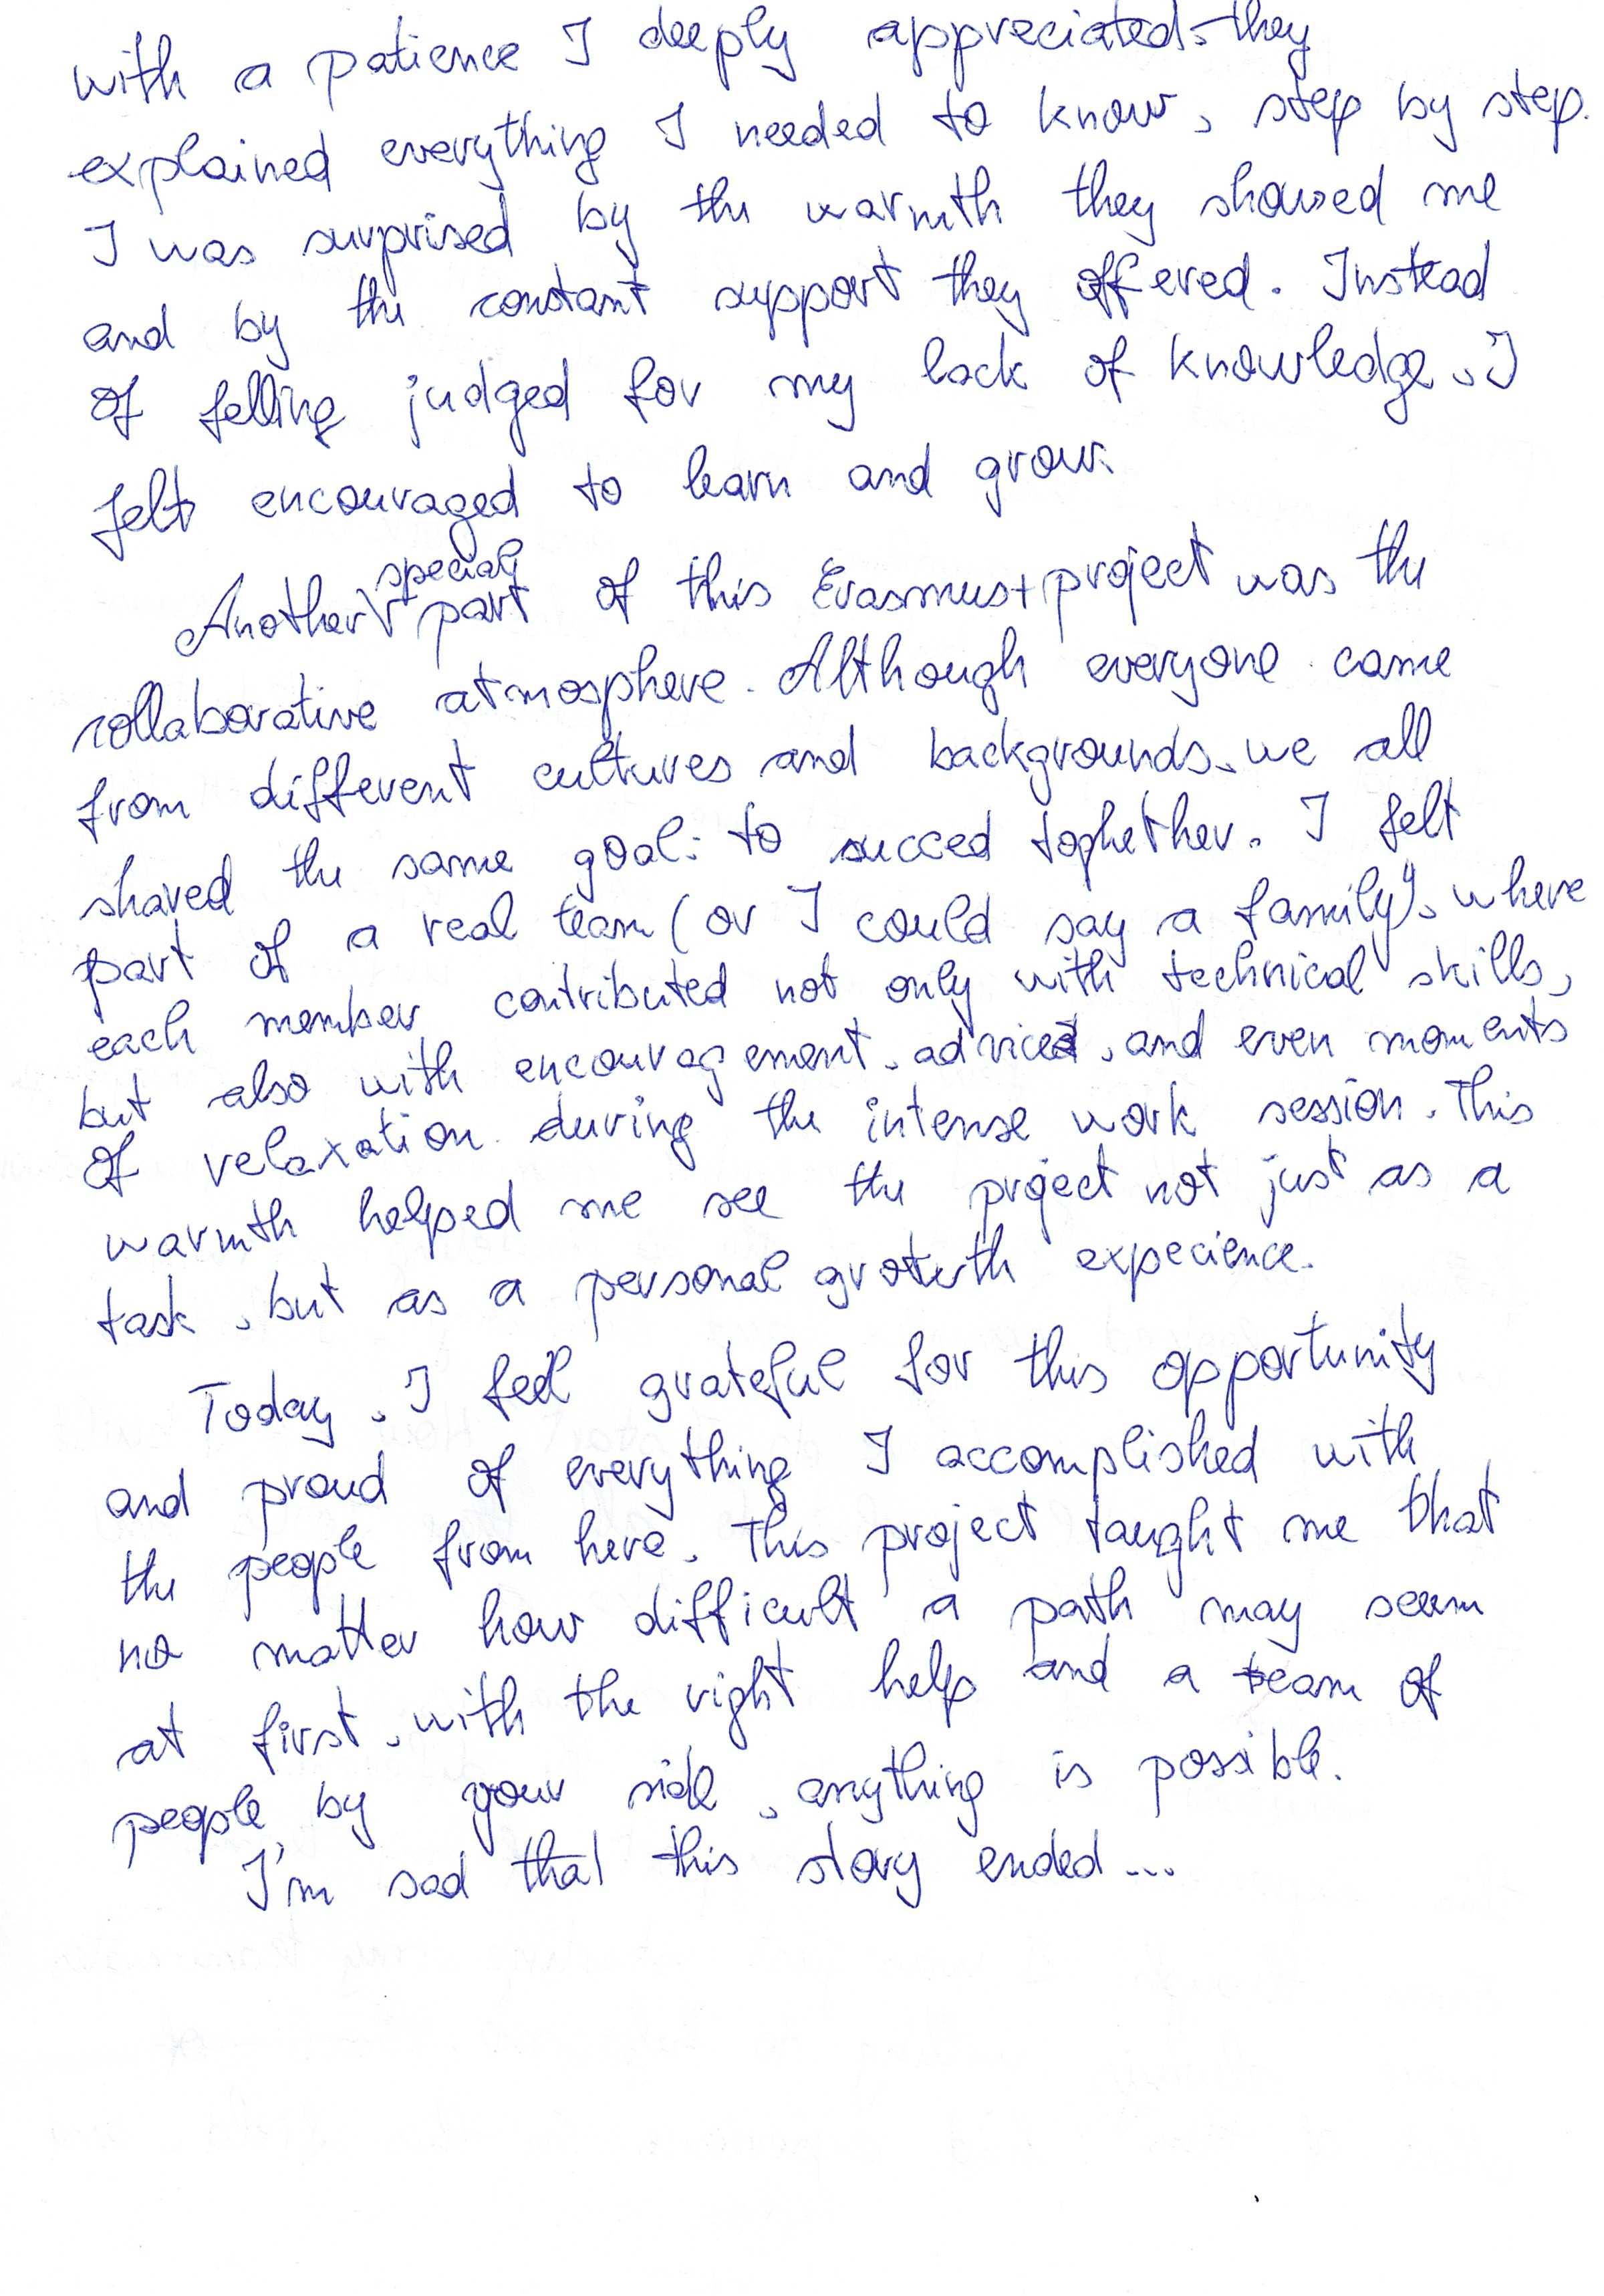 with a patience I deeply appreciated-they
explained everything I needed to know, step by step.
I was surprised by the warmth they showed me
and by the constant support they offered. Instead
of felling judged for my lack of knowledge, I
felt encouraged to learn and grow.
Another special part of this Erasmus+ project was the
collaborative atmosphere. Although everyone came
from different cultures and backgrounds, we all
shared the same goal: to succed tophether. I felt
part of a real team (or I could say a family), where
each member contributed not only with technical skills,
but also with encouragement, advice, and even moments
of relaxation during the intense work session. This
warmth helped me see the project not just as a
task, but as a personal growth expecience.
Today, I feel grateful for this opportunity
and proud of everything I accomplished with
the people from here. This project taught me that
no matter how difficult a path may seem
at first, with the right help and a team of
people by your side, anything is possible.
I'm sad that this story ended...